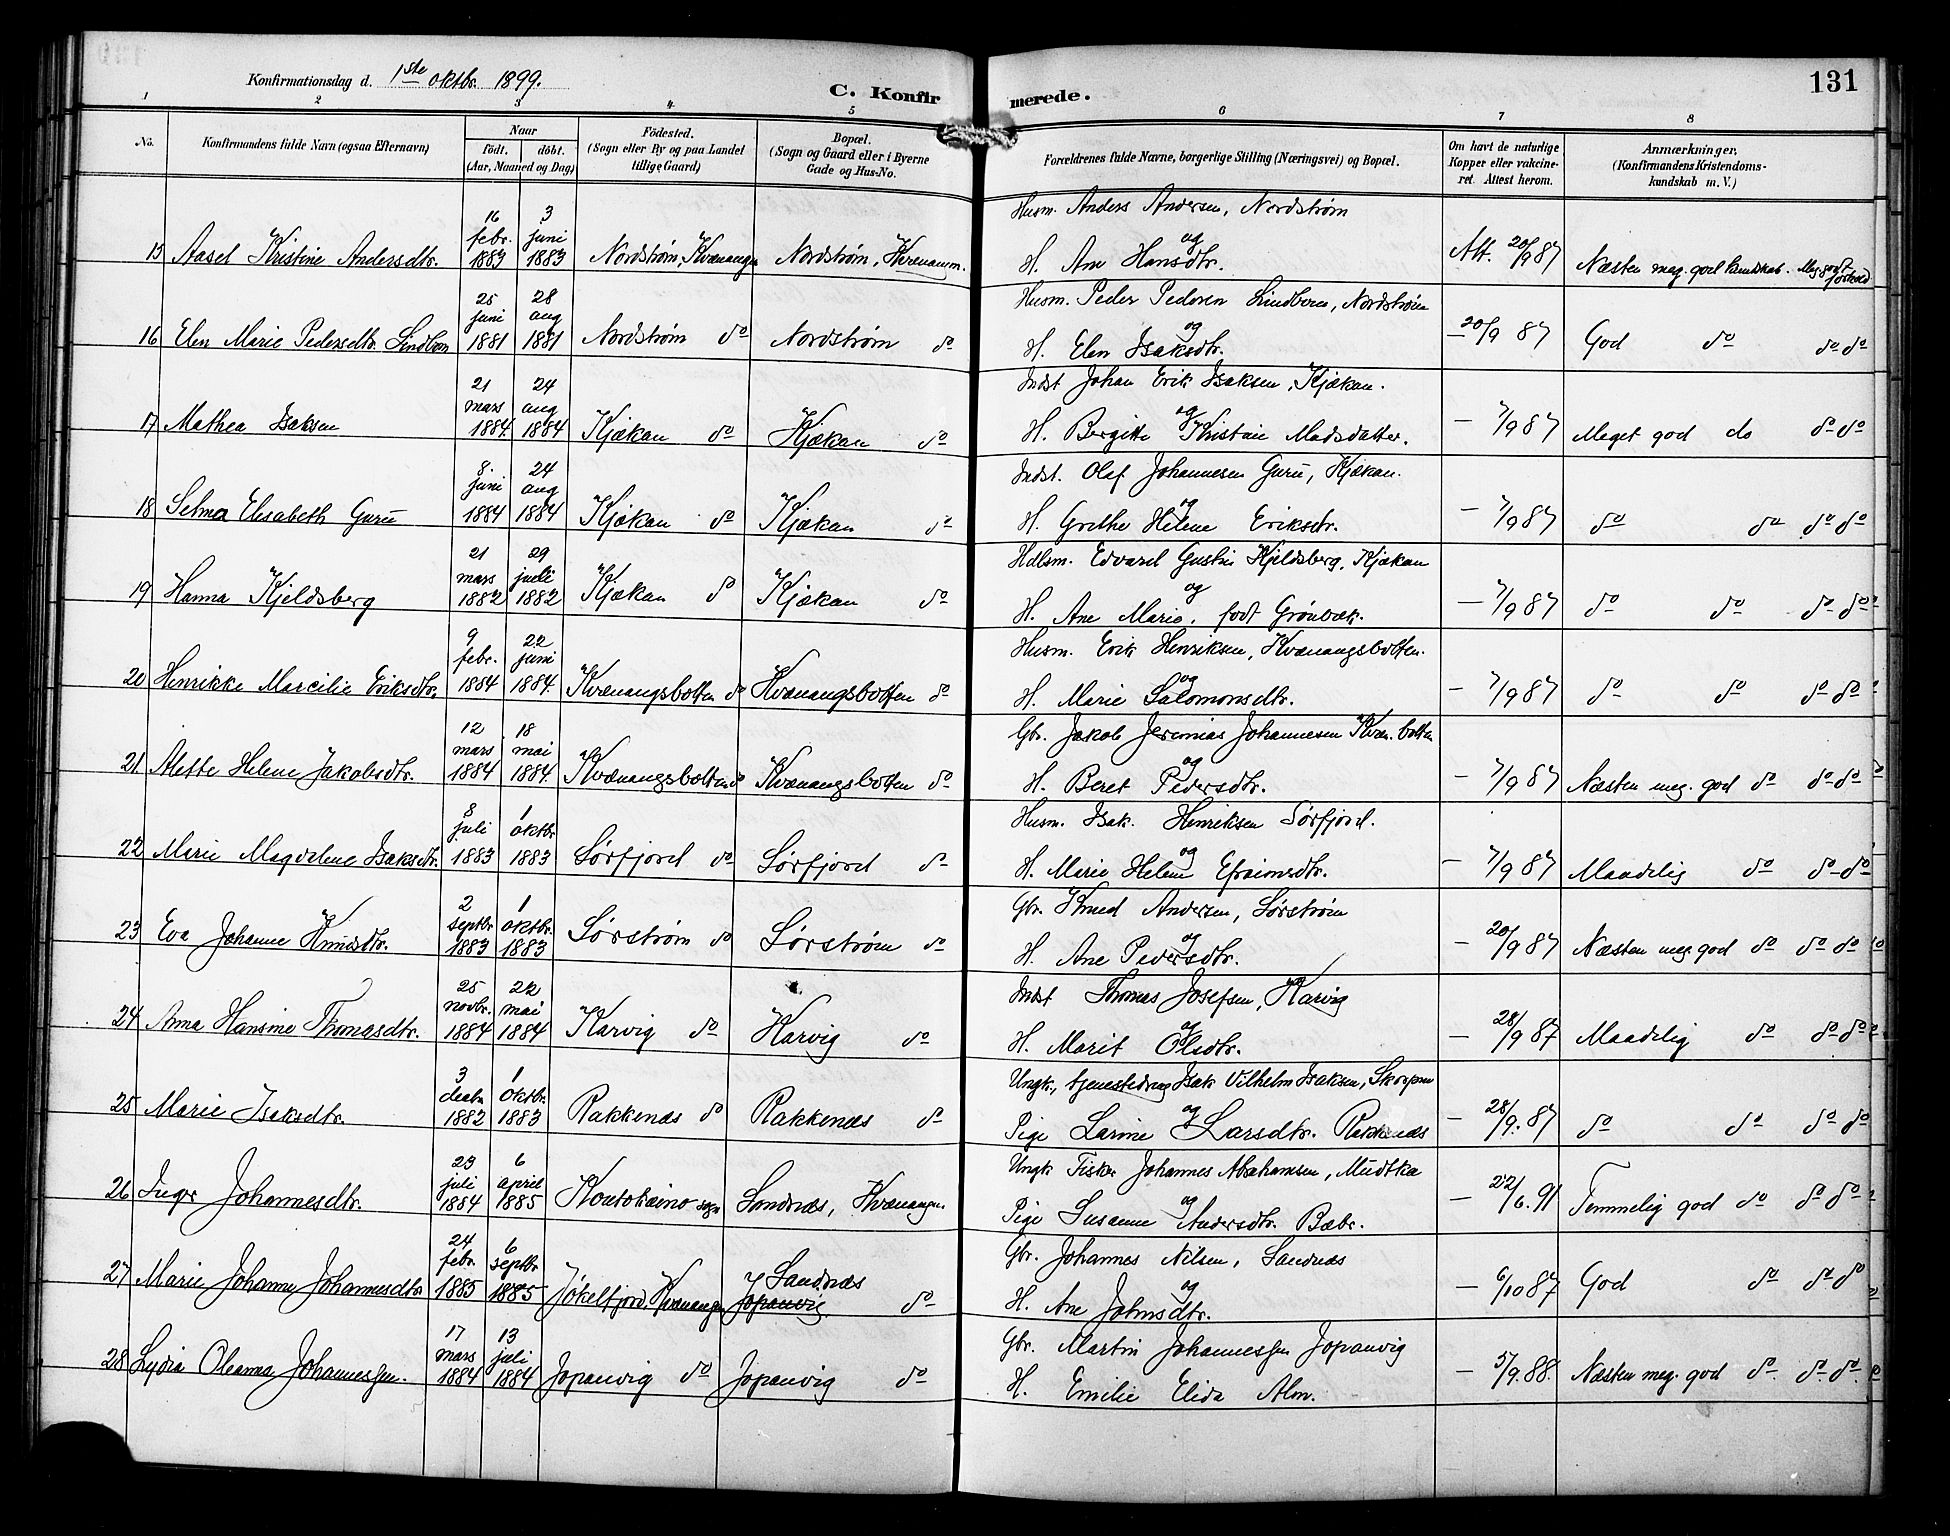 Konfirmationsdag d. 1ste oktbr. 1899.
C. Konfirmerede.
131
1 2 3 4 5 6 7 8
No. Konfirmandens fulde Navn (ogsaa Efternavn) Naar födt. döbt. (Aar, Maaned og Dag) Födested. (Sogn eller By og paa Landet tillige Gaard) Bopæl. (Sogn og Gaard eller i Byerne Gade og Hus-No. Forældrenes fulde Navne, borgerlige Stilling (Næringsvei) og Bopæl. Om havt de naturlige Kopper eller vakcineret. Attest herom. Anmærkninger. (Konfirmandens Kristendomskundskab m. V.)
15 Aasel Kristine Andersdtr. 16 febr. 1883 3 juni 1883 Nordstrøm, Kvænangn Nordstrøm, Kvænangn. Husm. Anders Andersen, Nordstrøm og H. Ane Hansdtr. Att. 20/9 87 Næsten meg. god kundskab. Meg. godt forhold
16 Elen Marie Pedersdtr. Lindbom 25 juni 1881 28 aug 1881 Nordstrøm do Nordstrøm do Husm. Peder Pedersen Lindbom, Nordstrøm og H. Elen Isaksdtr. — 20/9 87 God do do do
17 Mathea Isaksen 21 mars 1884. 24 aug 1884 Kjækan do Kjækan do Indst Johan Erik Isaksen, Kjækan. og H. Bergitte Kristine Madsdatter. — 7/9 87 Meget god do do do
18 Selma Elisabeth Guru 8. juni 1884 24 aug 1884 Kjækan do Kjækan do Indst. Olaf Johannesen Guru, Kjækan. og H. Grethe Helene Eriksdtr. — 7/9 87 do do do do
19 Hanna Kjeldsberg 21 mars 1882 29 juli 1882 Kjækan do Kjækan do Hdlsm. Edvard Gustav Kjeldsberg, Kjækan og H. Ane Marie, født Grønbæk. — 7/9 87 do do do do
20 Henrikke Marcilie Eriksdtr. 9 febr. 1884 22 juni 1884. Kvænangsbotten do Kvænangsbotten do Husm. Erik Henriksen, Kvænangsbotten. og H. Marie Salomonsdtr. — 7/9 87 do do do do
21 Mette Helene Jakobsdtr. 12 mars 1884 18 mai 1884. Kvænangsbotten do Kvænangsbotten do Gbr. Jakob Jeremias Johannesen Kvæn.botten og H. Beret Pedersdtr. — 7/9 87 Næsten meg. god do do do
22 Marie Magdelene Isaksdtr. 8 juli 1883 1 oktbr 1883 Sørfjord do Sørfjord do Husm. Isak Henriksen Sørfjord. og H. Marie Helene Efraimsdtr. — 7/9 87 Maadelig do do do
23 Eva Johanne Knudsdtr. 2 septbr 1883 1 oktbr. 1883 Sørstrøm do Sørstrøm do Gbr. Knud Andersen, Sørstrøm og H. Ane Pedersdtr. — 20/9 87 Næsten meg. god do do do
24 Anna Hansine Thomasdtr. 25 novbr. 1884 22 mai 1884 Karvig do Karvig do Indst Thomas Josefsen, Karvig og H. Marit Olsdtr. — 28/9 87 Maadelig do do do
25 Marie Isaksdtr. 3 decbr 1882 1 oktbr. 1883 Rakkenæs do Rakkenæs do Ungk., tjenestedreng Isak Vilhelm Isaksen, Skorpen og Pige Larine Larsdtr. Rakkenæs — 28/9. 87 do do do do
26 Inger Johannesdtr. 23 juli 1884 6 april 1885 Koutokæino sogn Sandnæs, Kvænangn. Ungk. Fisker Johannes Abrahamsen, Mudtka og Pige Susanne Andersdtr. Bæbr. — 22/6. 91 Temmelig god do do do
27 Marie Johanne Johannesdtr 24 febr. 1885 6 septbr 1885 Jøkelfjord Kvænangen Sandnæs Jopanvig do Gbr. Johannes Nilsen, Sandnæs og H. Ane Johnsdtr. — 6/10 87 God do do do
28 Lydia Oleanna Johannessen. 17 mars 1884 13 juli 1884 Jopanvig do Jopanvig do Gbr. Martin Johannessen Jopanvig H. Emilie Elida Alm. — 5/9. 88. Næsten meg. god do do do